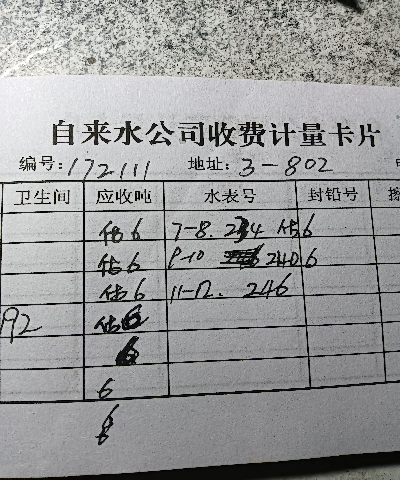 自来水公司收费计量卡片
编号:172111 地址: 3-802
卫生间 应收吨 水表号 封铅号
估6 7-8. 234 估6
估6 9-10 240 6
估6 11-12. 246
192 估6
6
6
8